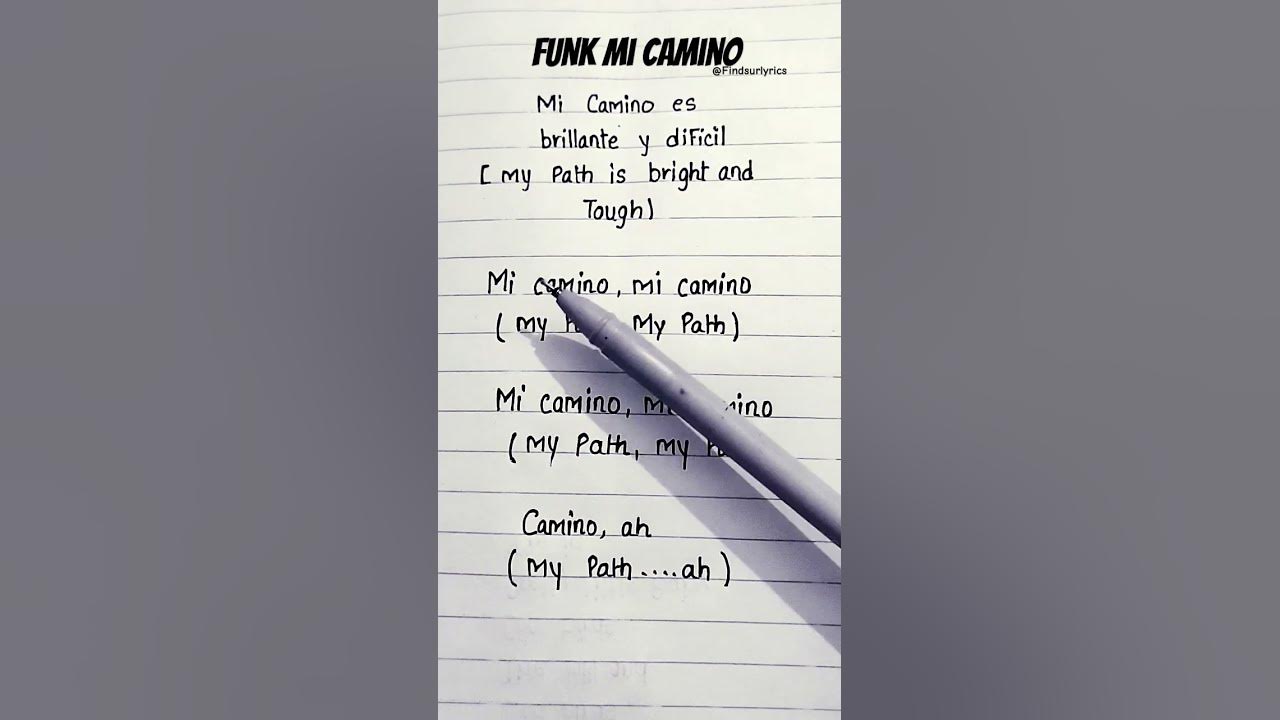 FUNK MI CAMINO
@Findsurlyrics
Mi Camino es
brillante y diFicil
[ my Path is bright and
Tough)
Mi camino, mi camino
( my My Path)
Mi camino,
(my Path, my
Camino, ah
( my Path....ah )